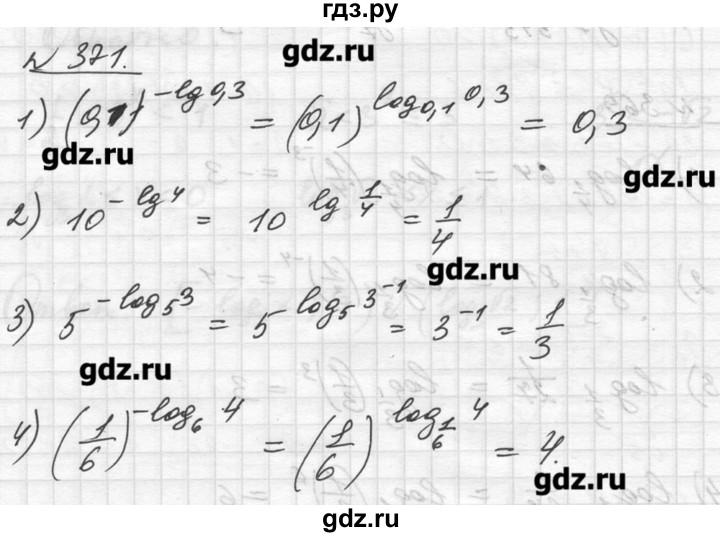 гдз.ру
№ 371.
gdz.ru
1) (0,1)^{-lg 0,3} = (0,1)^{log_{0,1} 0,3} = 0,3
gdz.ru
gdz.ru
2) 10^{-lg 4} = 10^{lg 1/4} = 1/4
gdz.ru
3) 5^{-log_5 3} = 5^{log_5 3^{-1}} = 3^{-1} = 1/3
gdz.ru
4) (1/6)^{-log_6 4} = (1/6)^{log_{1/6} 4} = 4.
gdz.ru
gdz.ru